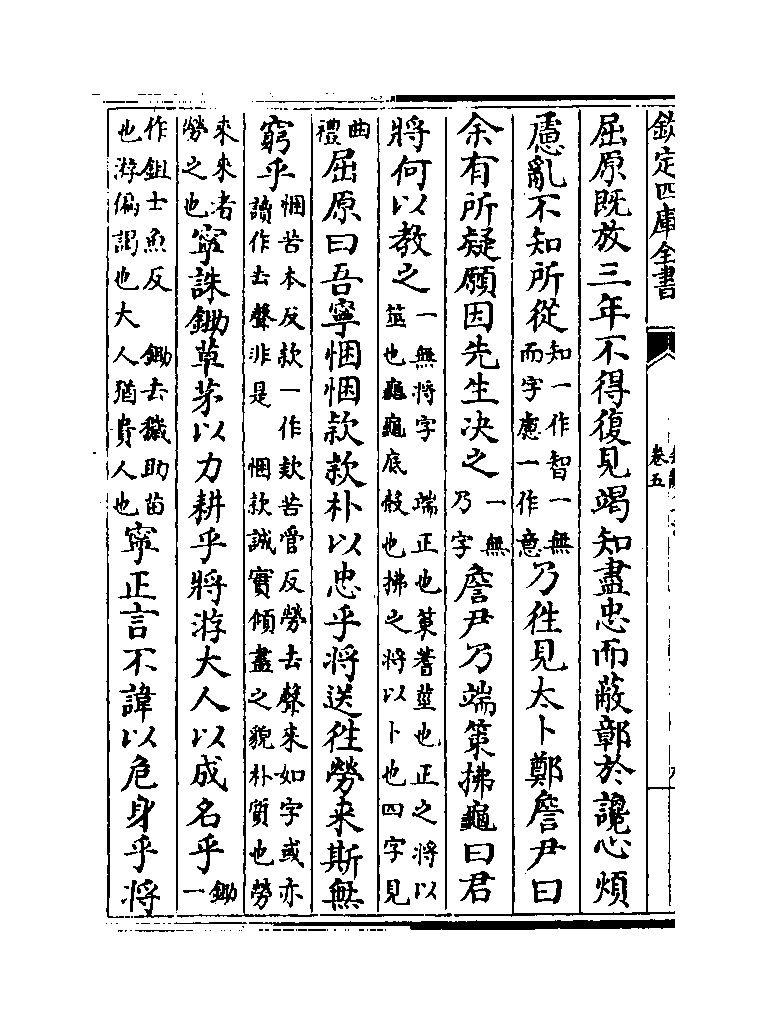 欽定四庫全書
卷五
屈原既放三年不得復見竭知盡忠而蔽鄣於讒心煩
慮亂不知所從知一作智一無而字慮一作意乃往見太卜鄭詹尹曰
余有所疑願因先生决之一無乃字詹尹乃端策拂龜曰君
將何以教之一無將字 端正也策蓍莖也正之將以筮也龜龜底殼也拂之將以卜也四字見
曲禮屈原曰吾寧悃悃款款朴以忠乎將送往勞来斯無
窮乎悃苦本反款一作欵苦管反勞去聲来如字或亦讀作去聲非是 悃款誠實傾盡之貌朴質也勞
来来者勞之也寧誅鋤草茅以力耕乎將游大人以成名乎鋤一
作鉏士魚反 鋤去穢助苗也游徧謁也大人猶貴人也寧正言不諱以危身乎將